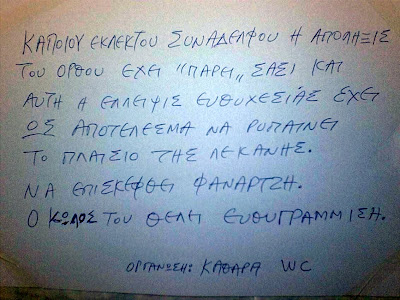 ΚΑΠΟΙΟΥ ΕΚΛΕΚΤΟΥ ΣΥΝΑΔΕΛΦΟΥ Η ΑΠΟΛΗΞΙΣ
ΤΟΥ ΟΡΘΟΥ ΕΧΕΙ "ΠΑΡΕΙ,, ΣΑΣΙ ΚΑΙ
ΑΥΤΗ Η ΕΛΛΕΙΨΙΣ ΕΥΘΥΧΕΣΙΑΣ ΕΧΕΙ
ΟΣ ΑΠΟΤΕΛΕΣΜΑ ΝΑ ΡΥΠΑΙΝΕΙ
ΤΟ ΠΛΑΙΣΙΟ ΤΗΣ ΛΕΚΑΝΗΣ.
ΝΑ ΕΠΙΣΚΕΦΘΕΙ ΦΑΝΑΡΤΖΗ.
Ο ΚΩΛΟΣ ΤΟΥ ΘΕΛΕΙ ΕΥΘΥΓΡΑΜΜΙΣΗ.
ΟΡΓΑΝΩΣΗ: ΚΑΘΑΡΑ WC